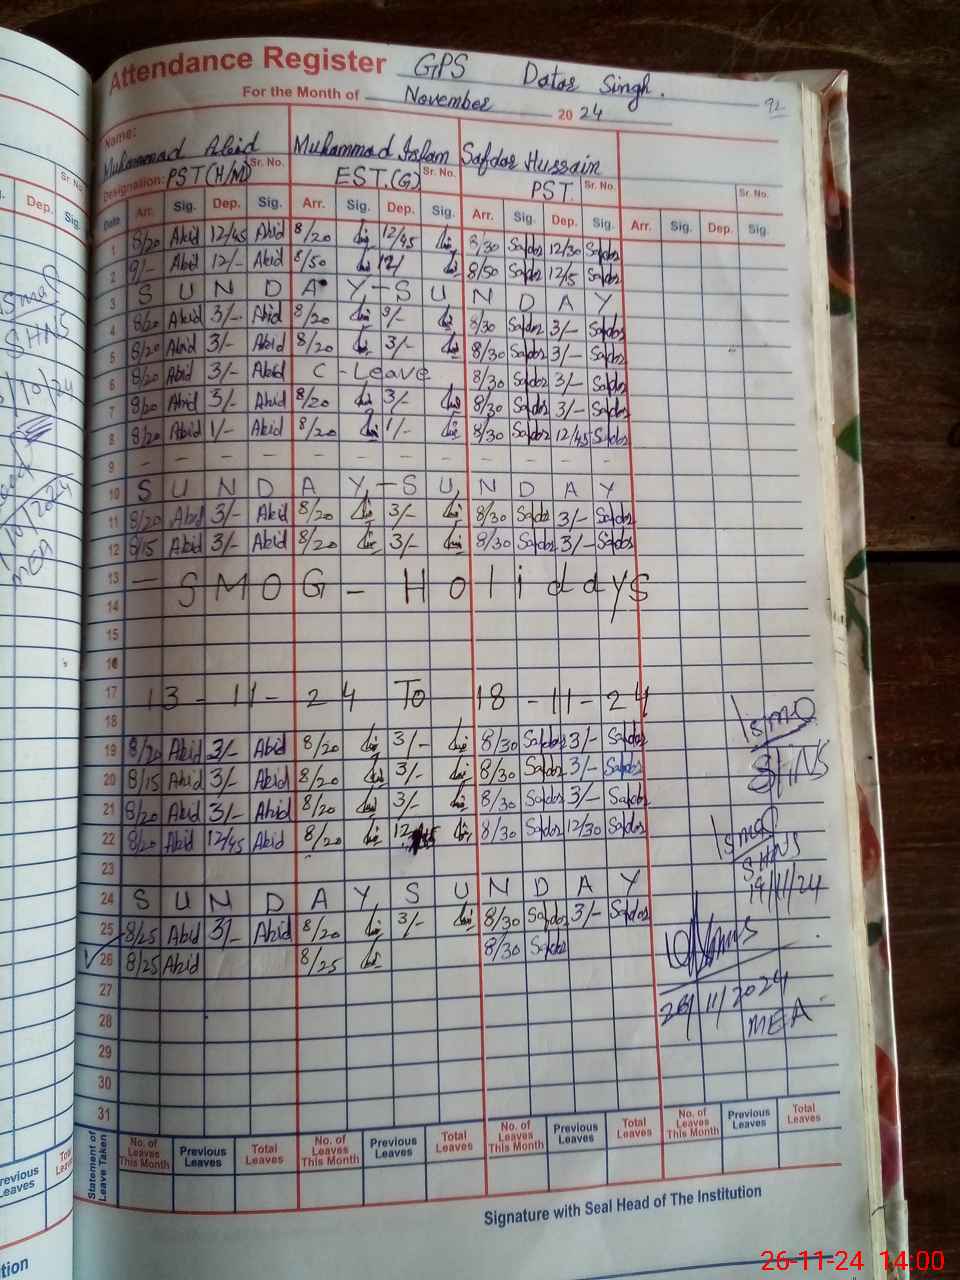 Attendance Register GPS Datar Singh.
For the Month of November 2024
92
Name: Muhammad Abid Muhammad Islam Safdar Hussain
Designation: PST (H/M) Sr. No. EST.(G) Sr. No. PST. Sr. No. Sr. No.
Date Arr. Sig. Dep. Sig. Arr. Sig. Dep. Sig. Arr. Sig. Dep. Sig. Arr. Sig. Dep. Sig.
1 8/20 Abid 12/45 Abid 8/20 12/45 8/30 Safdar 12/30 Safdar
2 9/- Abid 12/- Abid 8/50 12/ 8/50 Safdar 12/5 Safdar
3 S U N D A Y - S U N D A Y
4 8/20 Abid 3/- Abid 8/20 3/- 8/30 Safdar 3/- Safdar
5 8/20 Abid 3/- Abid 8/20 3/- 8/30 Safdar 3/- Safdar
6 8/20 Abid 3/- Abid C - Leave 8/30 Safdar 3/- Safdar
7 8/20 Abid 3/- Abid 8/20 3/- 8/30 Safdar 3/- Safdar
8 8/20 Abid 1/- Abid 8/20 1/- 8/30 Safdar 12/45 Safdar
9 - - - - - - - - - - - -
10 S U N D A Y - S U N D A Y
11 8/20 Abid 3/- Abid 8/20 3/- 8/30 Safdar 3/- Safdar
12 8/15 Abid 3/- Abid 8/20 3/- 8/30 Safdar 3/- Safdar
13 - SMOG - Holiddays
14
15
16
17 13 - 11 - 24 To 18 - 11 - 24
18
19 8/20 Abid 3/- Abid 8/20 3/- 8/30 Safdar 3/- Safdar
20 8/15 Abid 3/- Abid 8/20 3/- 8/30 Safdar 3/- Safdar
21 8/20 Abid 3/- Abid 8/20 3/- 8/30 Safdar 3/- Safdar
22 8/20 Abid 12/45 Abid 8/20 12 8/30 Safdar 12/30 Safdar
23
24 S U N D A Y S U N D A Y
25 8/25 Abid 3/- Abid 8/20 3/- 8/30 Safdar 3/- Safdar
26 8/25 Abid 8/25 8/30 Safdar
27
28
29
30
31
SHNS
19/11/24
26/11/2024
MEA
Statement of Leave Taken
No. of Leaves This Month Previous Leaves Total Leaves No. of Leaves This Month Previous Leaves Total Leaves No. of Leaves This Month Previous Leaves Total Leaves No. of Leaves This Month Previous Leaves Total Leaves
Signature with Seal Head of The Institution
26-11-24 14:00